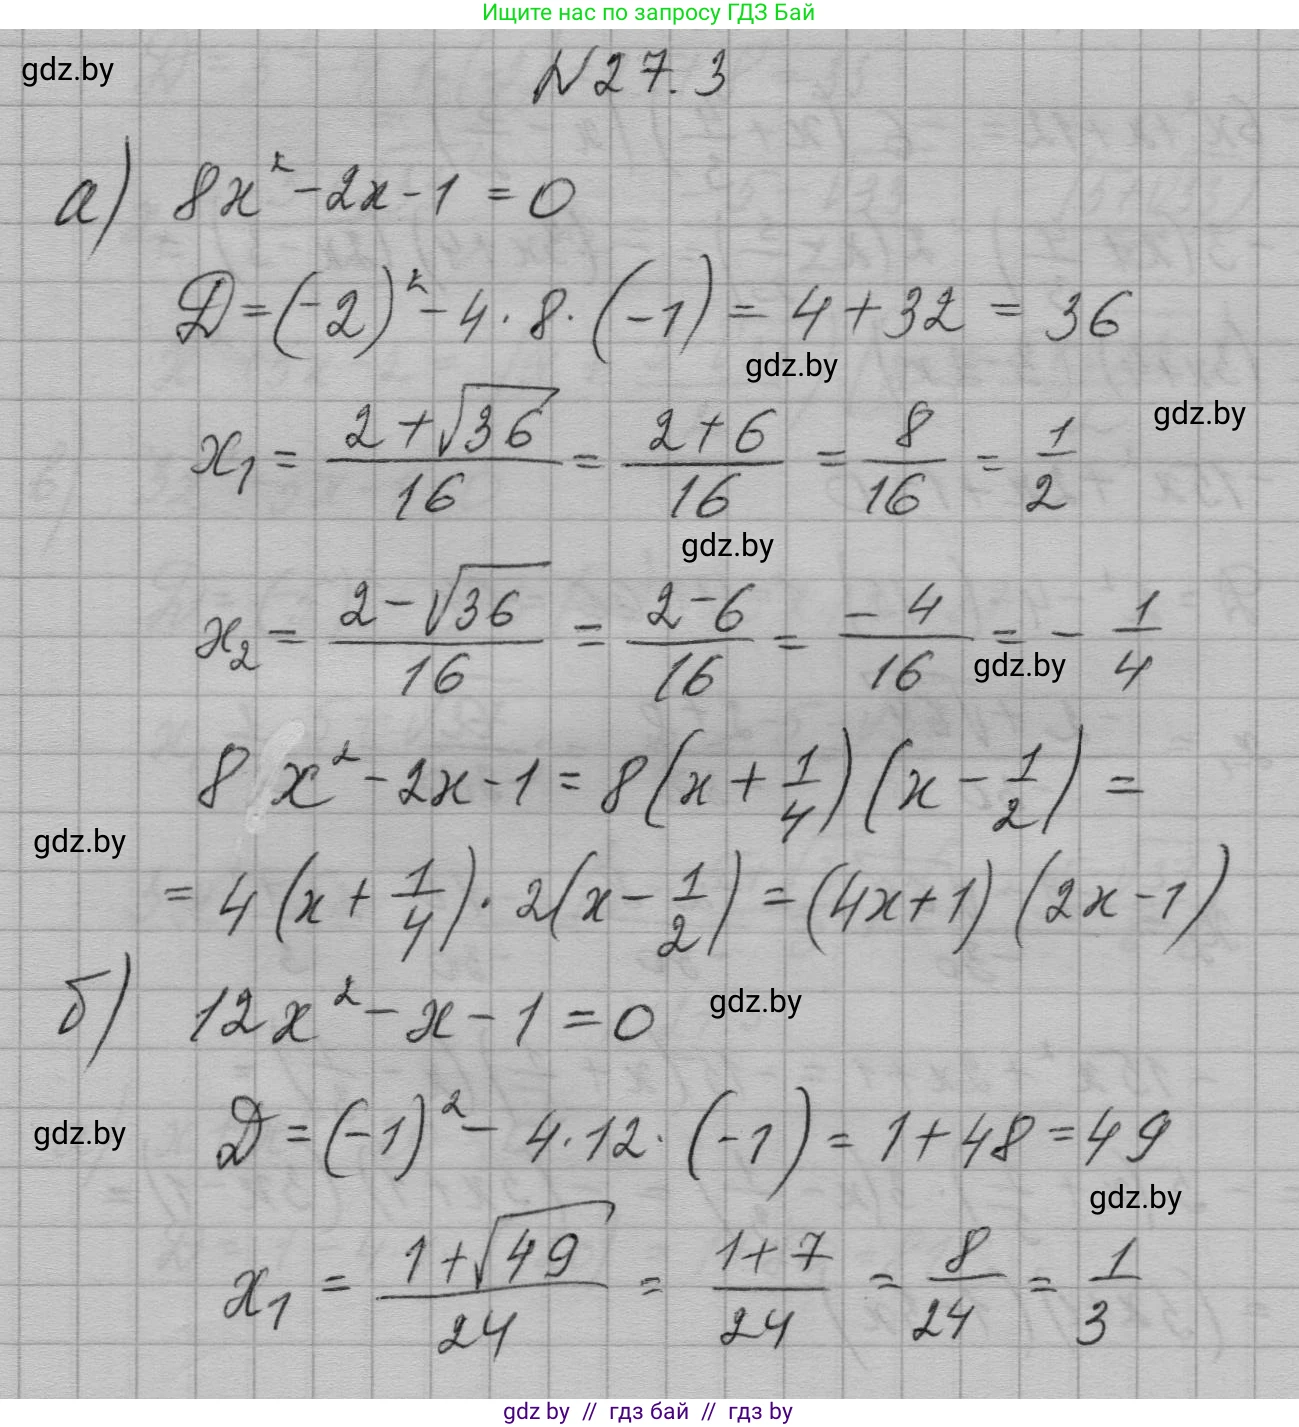 Ищите нас по запросу ГДЗ Бай
gdz.by
№27.3
а) 8x² - 2x - 1 = 0
Д = (-2)² - 4 · 8 · (-1) = 4 + 32 = 36
gdz.by
gdz.by
x₁ = (2 + √36)/16 = (2 + 6)/16 = 8/16 = 1/2
gdz.by
x₂ = (2 - √36)/16 = (2 - 6)/16 = (-4)/16 = - 1/4
gdz.by
8 x² - 2x - 1 = 8(x + 1/4)(x - 1/2) =
gdz.by
= 4(x + 1/4) · 2(x - 1/2) = (4x + 1)(2x - 1)
б) 12x² - x - 1 = 0
gdz.by
Д = (-1)² - 4 · 12 · (-1) = 1 + 48 = 49
gdz.by
gdz.by
x₁ = (1 + √49)/24 = (1 + 7)/24 = 8/24 = 1/3
gdz by // гдз бай // гдз by